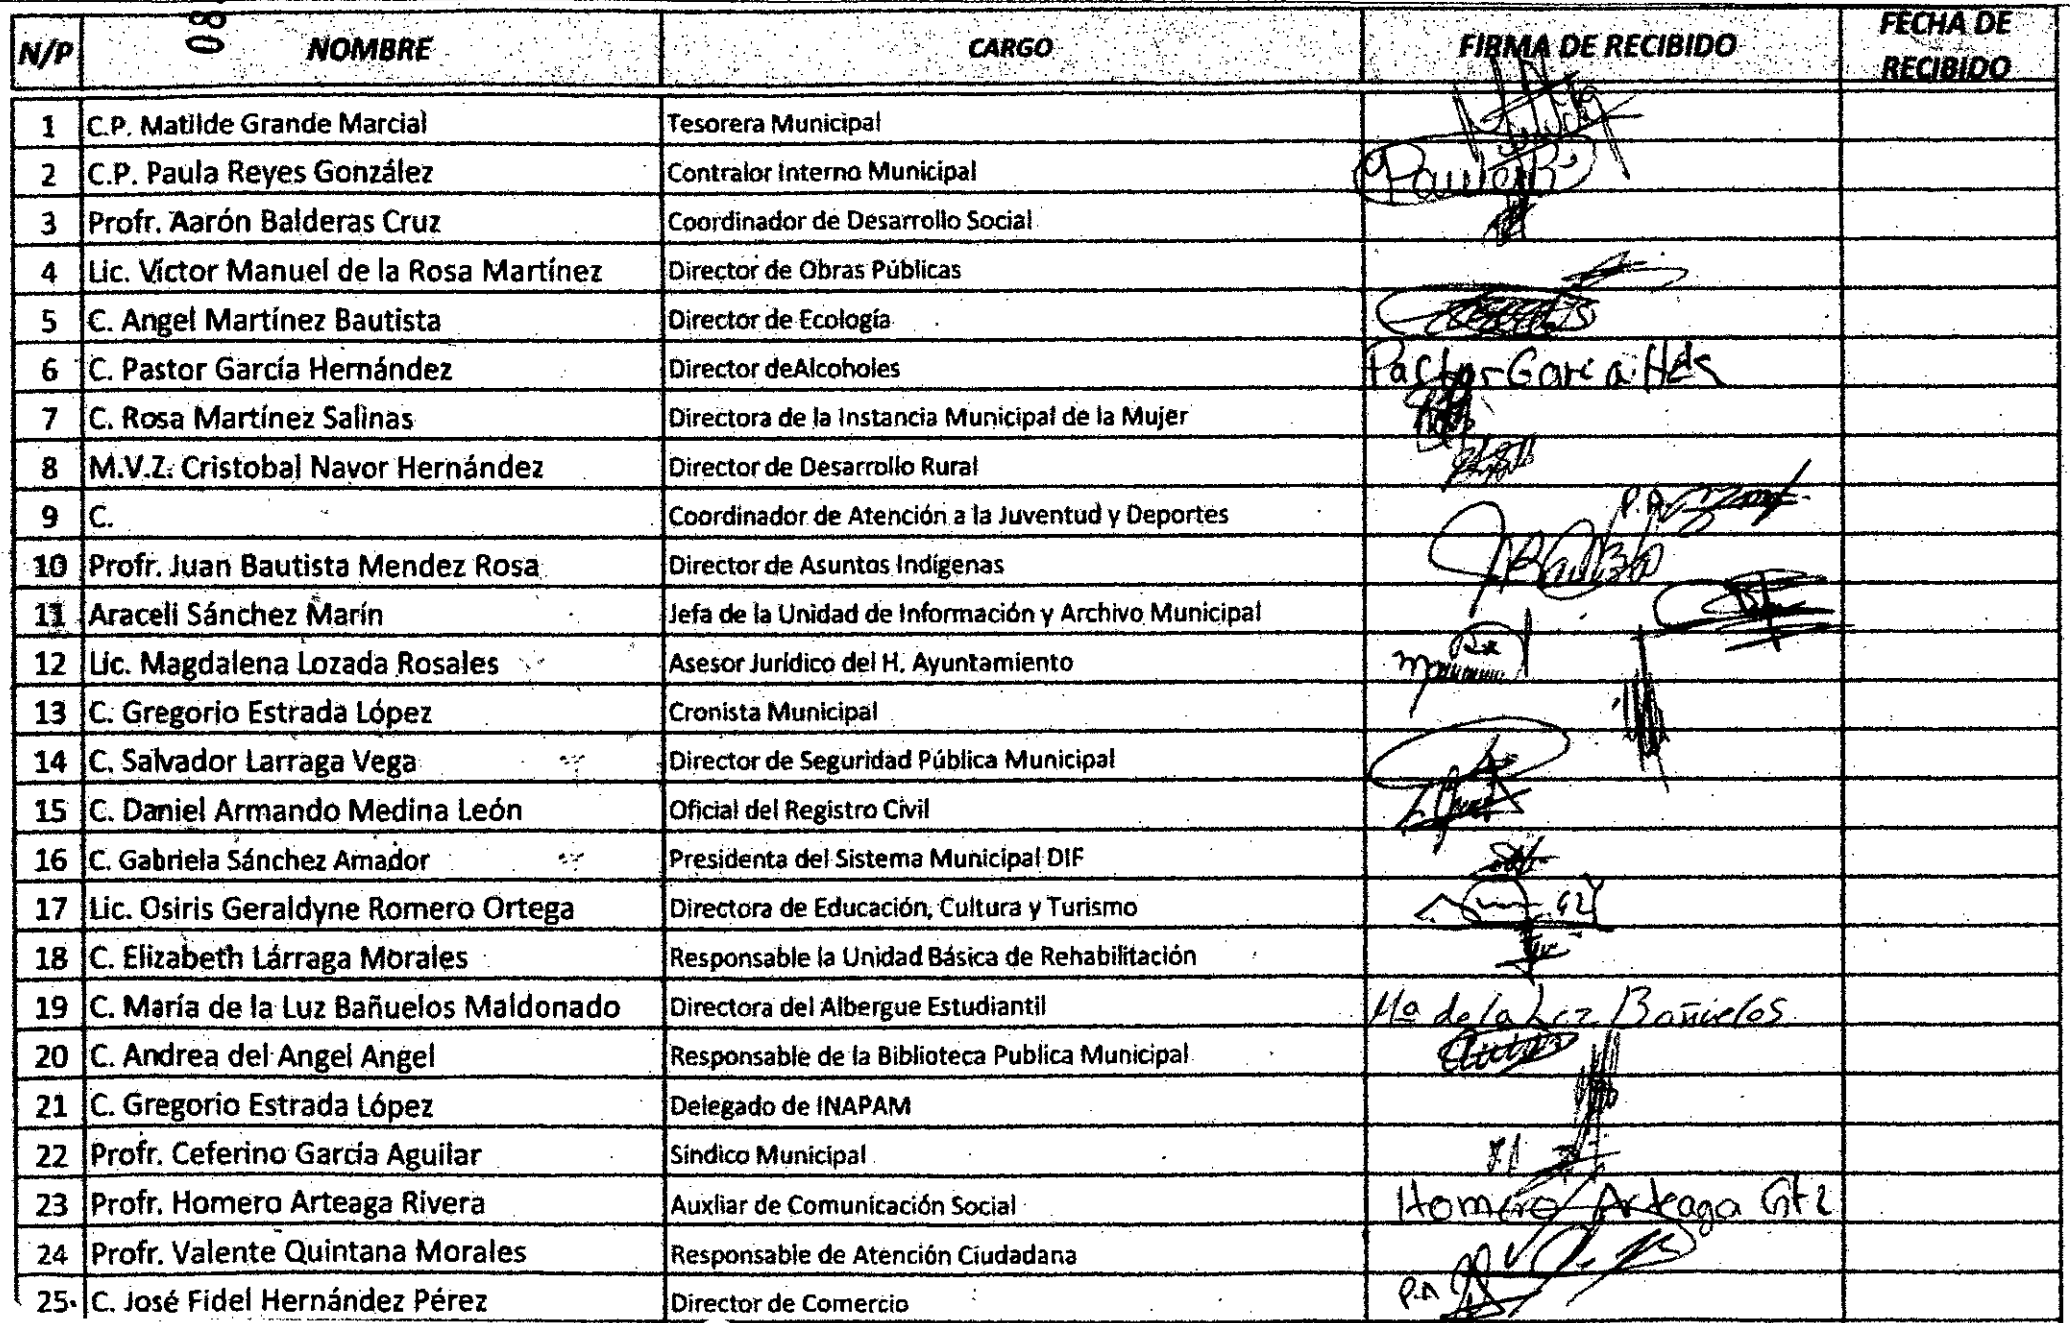 08
N/P NOMBRE CARGO FIRMA DE RECIBIDO FECHA DE RECIBIDO
1 C.P. Matilde Grande Marcial Tesorera Municipal
2 C.P. Paula Reyes González Contralor Interno Municipal
3 Profr. Aarón Balderas Cruz Coordinador de Desarrollo Social
4 Lic. Víctor Manuel de la Rosa Martínez Director de Obras Públicas
5 C. Angel Martínez Bautista Director de Ecología
6 C. Pastor García Hernández Director deAlcoholes Pastor Garcia Hdz
7 C. Rosa Martínez Salinas Directora de la Instancia Municipal de la Mujer
8 M.V.Z. Cristobal Navor Hernández Director de Desarrollo Rural
9 C. Coordinador de Atención a la Juventud y Deportes P.A.
10 Profr. Juan Bautista Mendez Rosa Director de Asuntos Indígenas
11 Araceli Sánchez Marín Jefa de la Unidad de Información y Archivo Municipal
12 Lic. Magdalena Lozada Rosales Asesor Jurídico del H. Ayuntamiento
13 C. Gregorio Estrada López Cronista Municipal
14 C. Salvador Larraga Vega Director de Seguridad Pública Municipal
15 C. Daniel Armando Medina León Oficial del Registro Civil
16 C. Gabriela Sánchez Amador Presidenta del Sistema Municipal DIF
17 Lic. Osiris Geraldyne Romero Ortega Directora de Educación, Cultura y Turismo
18 C. Elizabeth Lárraga Morales Responsable la Unidad Básica de Rehabilitación
19 C. María de la Luz Bañuelos Maldonado Directora del Albergue Estudiantil Ma de la Luz Bañuelos
20 C. Andrea del Angel Angel Responsable de la Biblioteca Publica Municipal
21 C. Gregorio Estrada López Delegado de INAPAM
22 Profr. Ceferino García Aguilar Síndico Municipal
23 Profr. Homero Arteaga Rivera Auxliar de Comunicación Social Homero Arteaga Gtz
24 Profr. Valente Quintana Morales Responsable de Atención Ciudadana
25 C. José Fidel Hernández Pérez Director de Comercio P.A